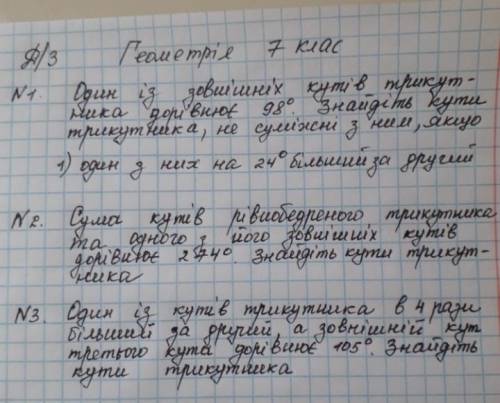 Д/З Геометрія 7 клас
N1. Один із зовнішніх кутів трикут-
ника дорівнює 98°. Знайдіть кути
трикутника, не суміжні з ним, якщо
1) один з них на 24° більший за другий
N2. Сума кутів рівнобедреного трикутника
та одного з його зовнішніх кутів
дорівнює 274°. Знайдіть кути трикут-
ника
N3. Один із кутів трикутника в 4 рази
більший за другий, а зовнішній кут
третього кута дорівнює 105°. Знайдіть
кути трикутника